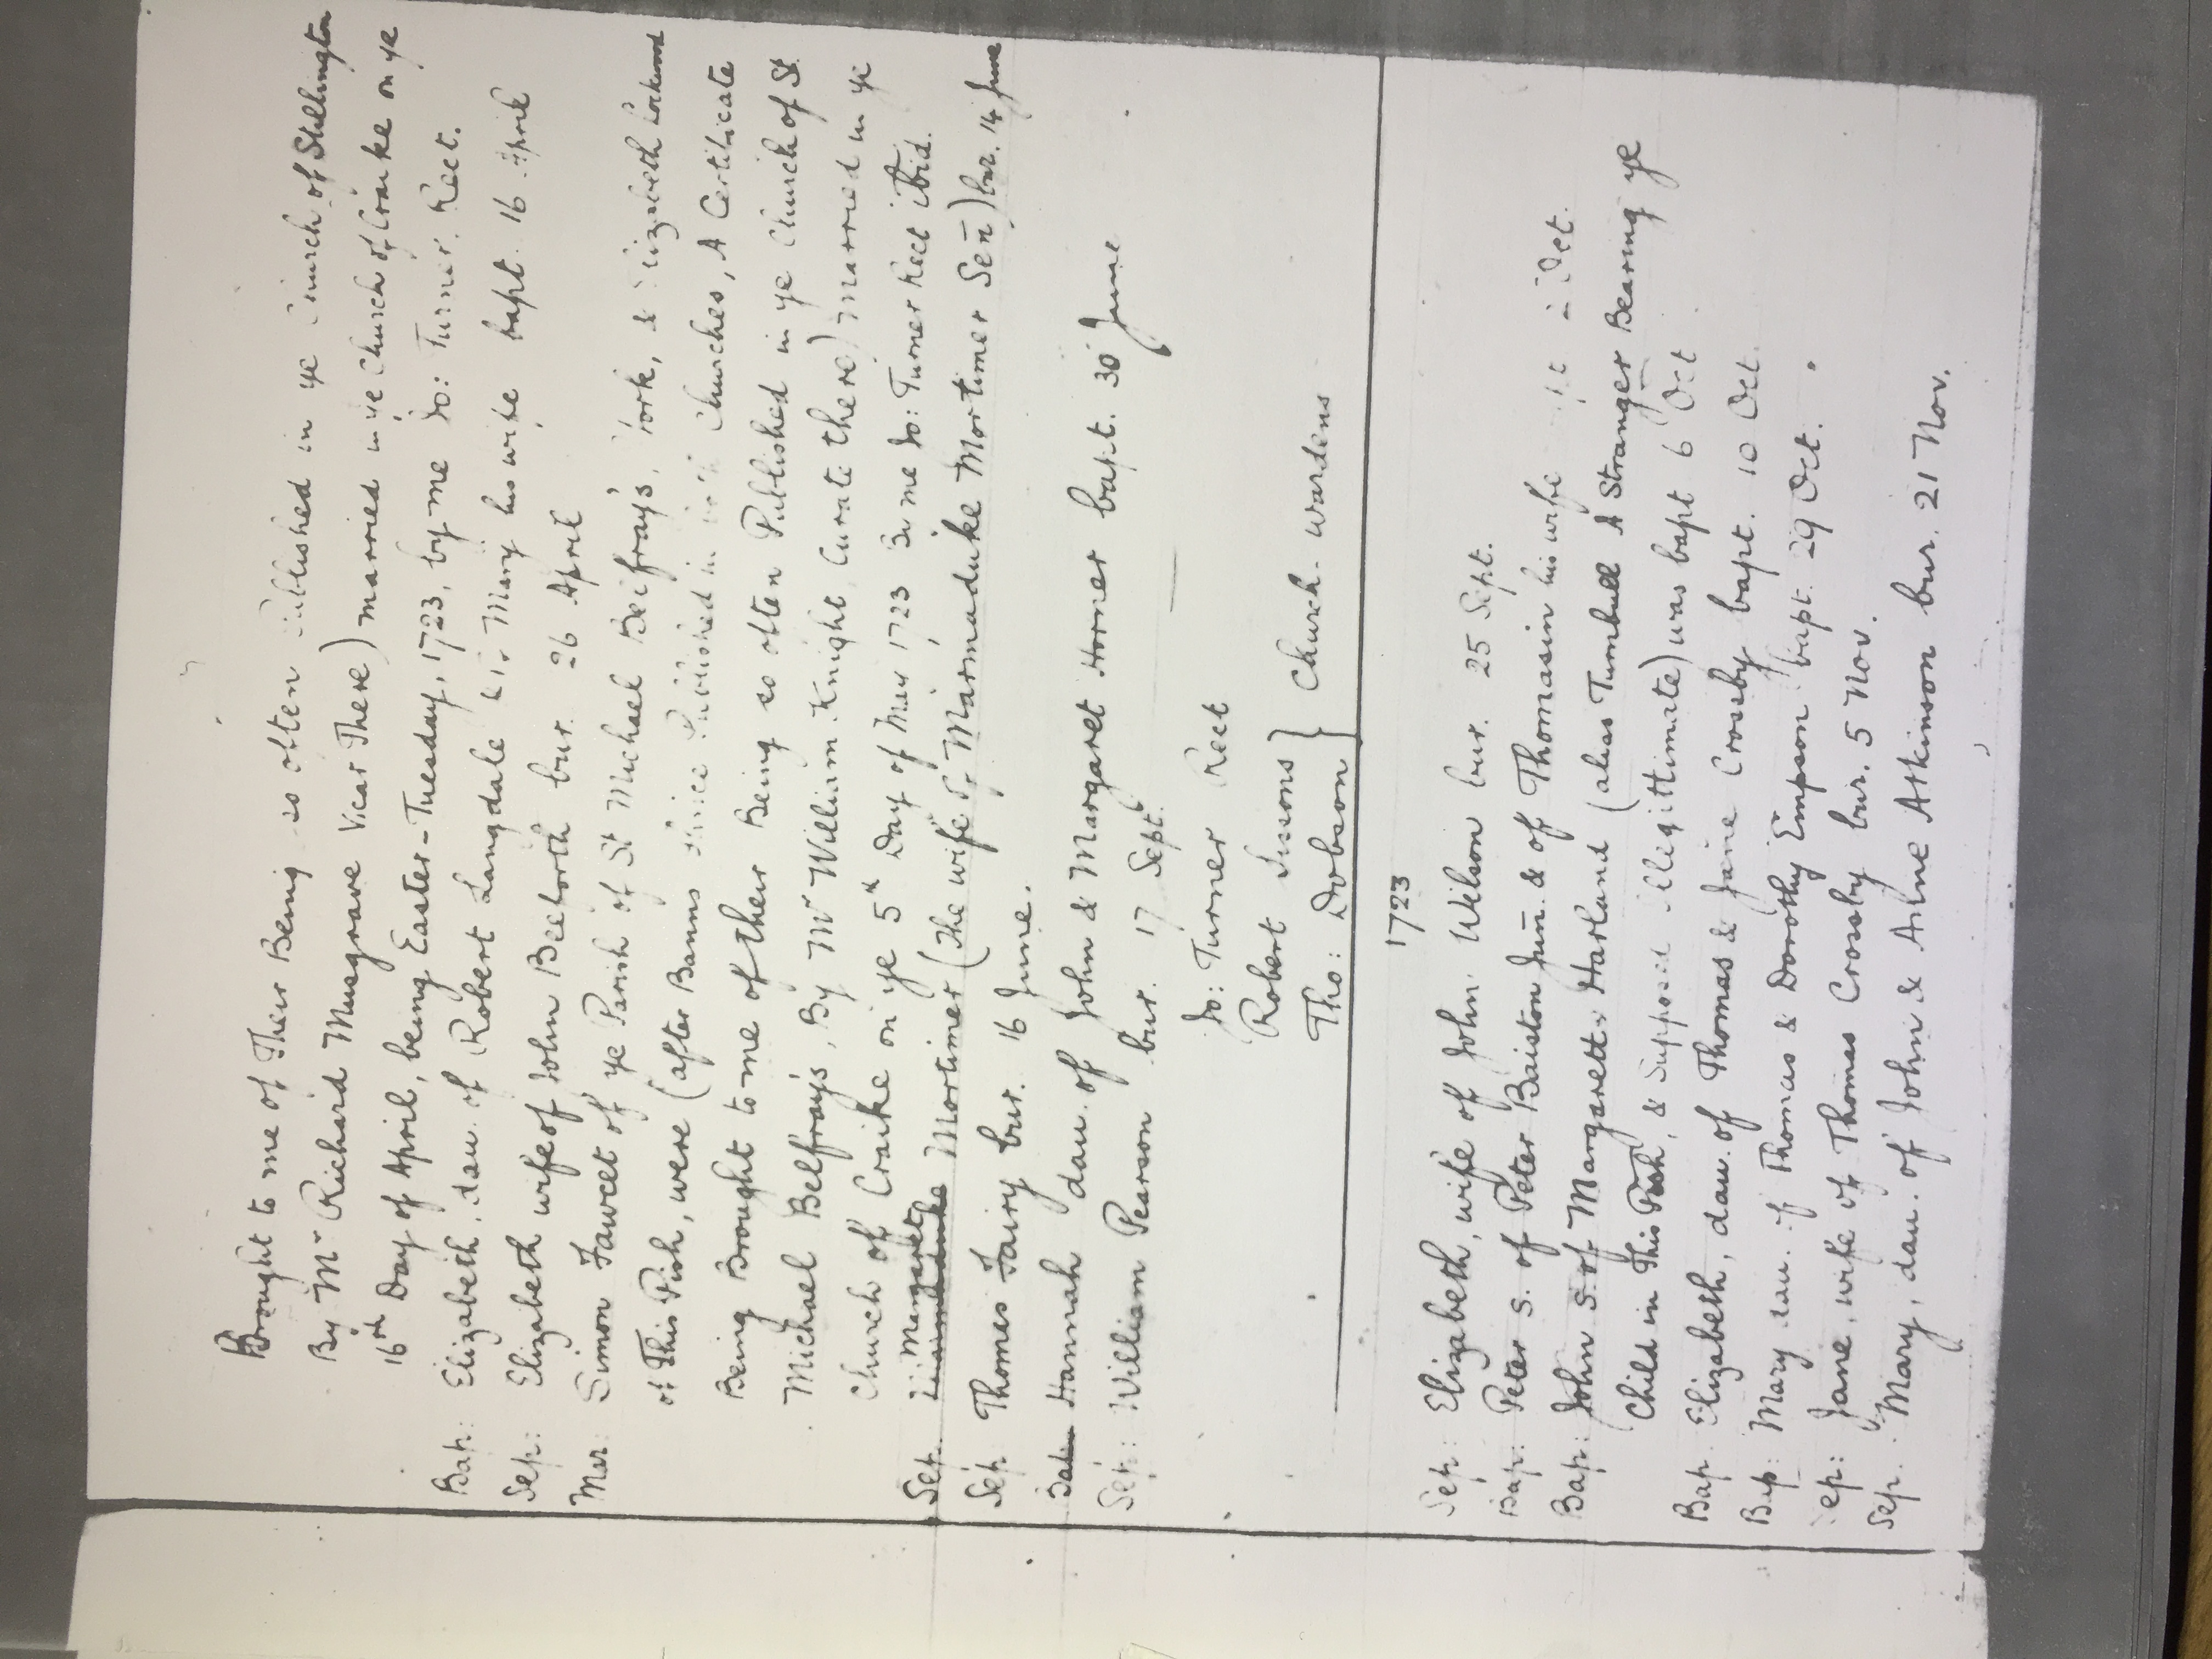 Brought to me of Their Being so often Published in ye Church of Stillington
By Mr Richard Musgrave Vicar There) married in ye Church of Craike on ye
16th Day of April, being Easter-Tuesday, 1723, by me Jo: Turner. Rect.
Bap: Elizabeth, dau. of Robert Langdale & Mary his wife bapt. 16 April
Sep: Elizabeth wife of John Beeforth bur. 26 April
Mar: Simon Fawcet of ye Parish of St Michael Belfray's, York, & Elizabeth
of This Pish, were (after Banns Published in Churches, A Certificate
Being Brought to me of their Being so often Published in ye Church of St
Michael Belfray's, By Mr William Knight Curate there) married in ye
Church of Craike on ye 5th Day of May 1723 By me Jo: Turner Rect Ibid.
Sep. Margaret Mortimer (The wife of Marmaduke Mortimer Sen) bur. 14 June
Sep. Thomas Fairy bur. 16 June.
Bap Hannah dau. of John & Margaret Horner bapt. 30 June
Sep: William Pearson bur. 17 Sept.
Jo: Turner Rect
Robert
Tho: Dobson } Church-wardens
1723
Sep: Elizabeth, wife of John Wilson bur. 25 Sept.
Bap: Peter s. of Peter Baiston Jun. & of Thomasin his wife Oct.
Bap: John s. of Margarett Harland (alias Turnbull A Stranger Bearing ye
Child in This Pish, & Supposed illegittimate) was bapt 6 Oct
Bap. Elizabeth, dau. of Thomas & Jane Crosby bapt. 10 Oct.
Bap: Mary dau. of Thomas & Dorothy Empson bapt. 29 Oct.
Sep: Jane, wife of Thomas Crosby bur. 5 Nov.
Sep. Mary, dau. of John & Anne Atkinson bur. 21 Nov.